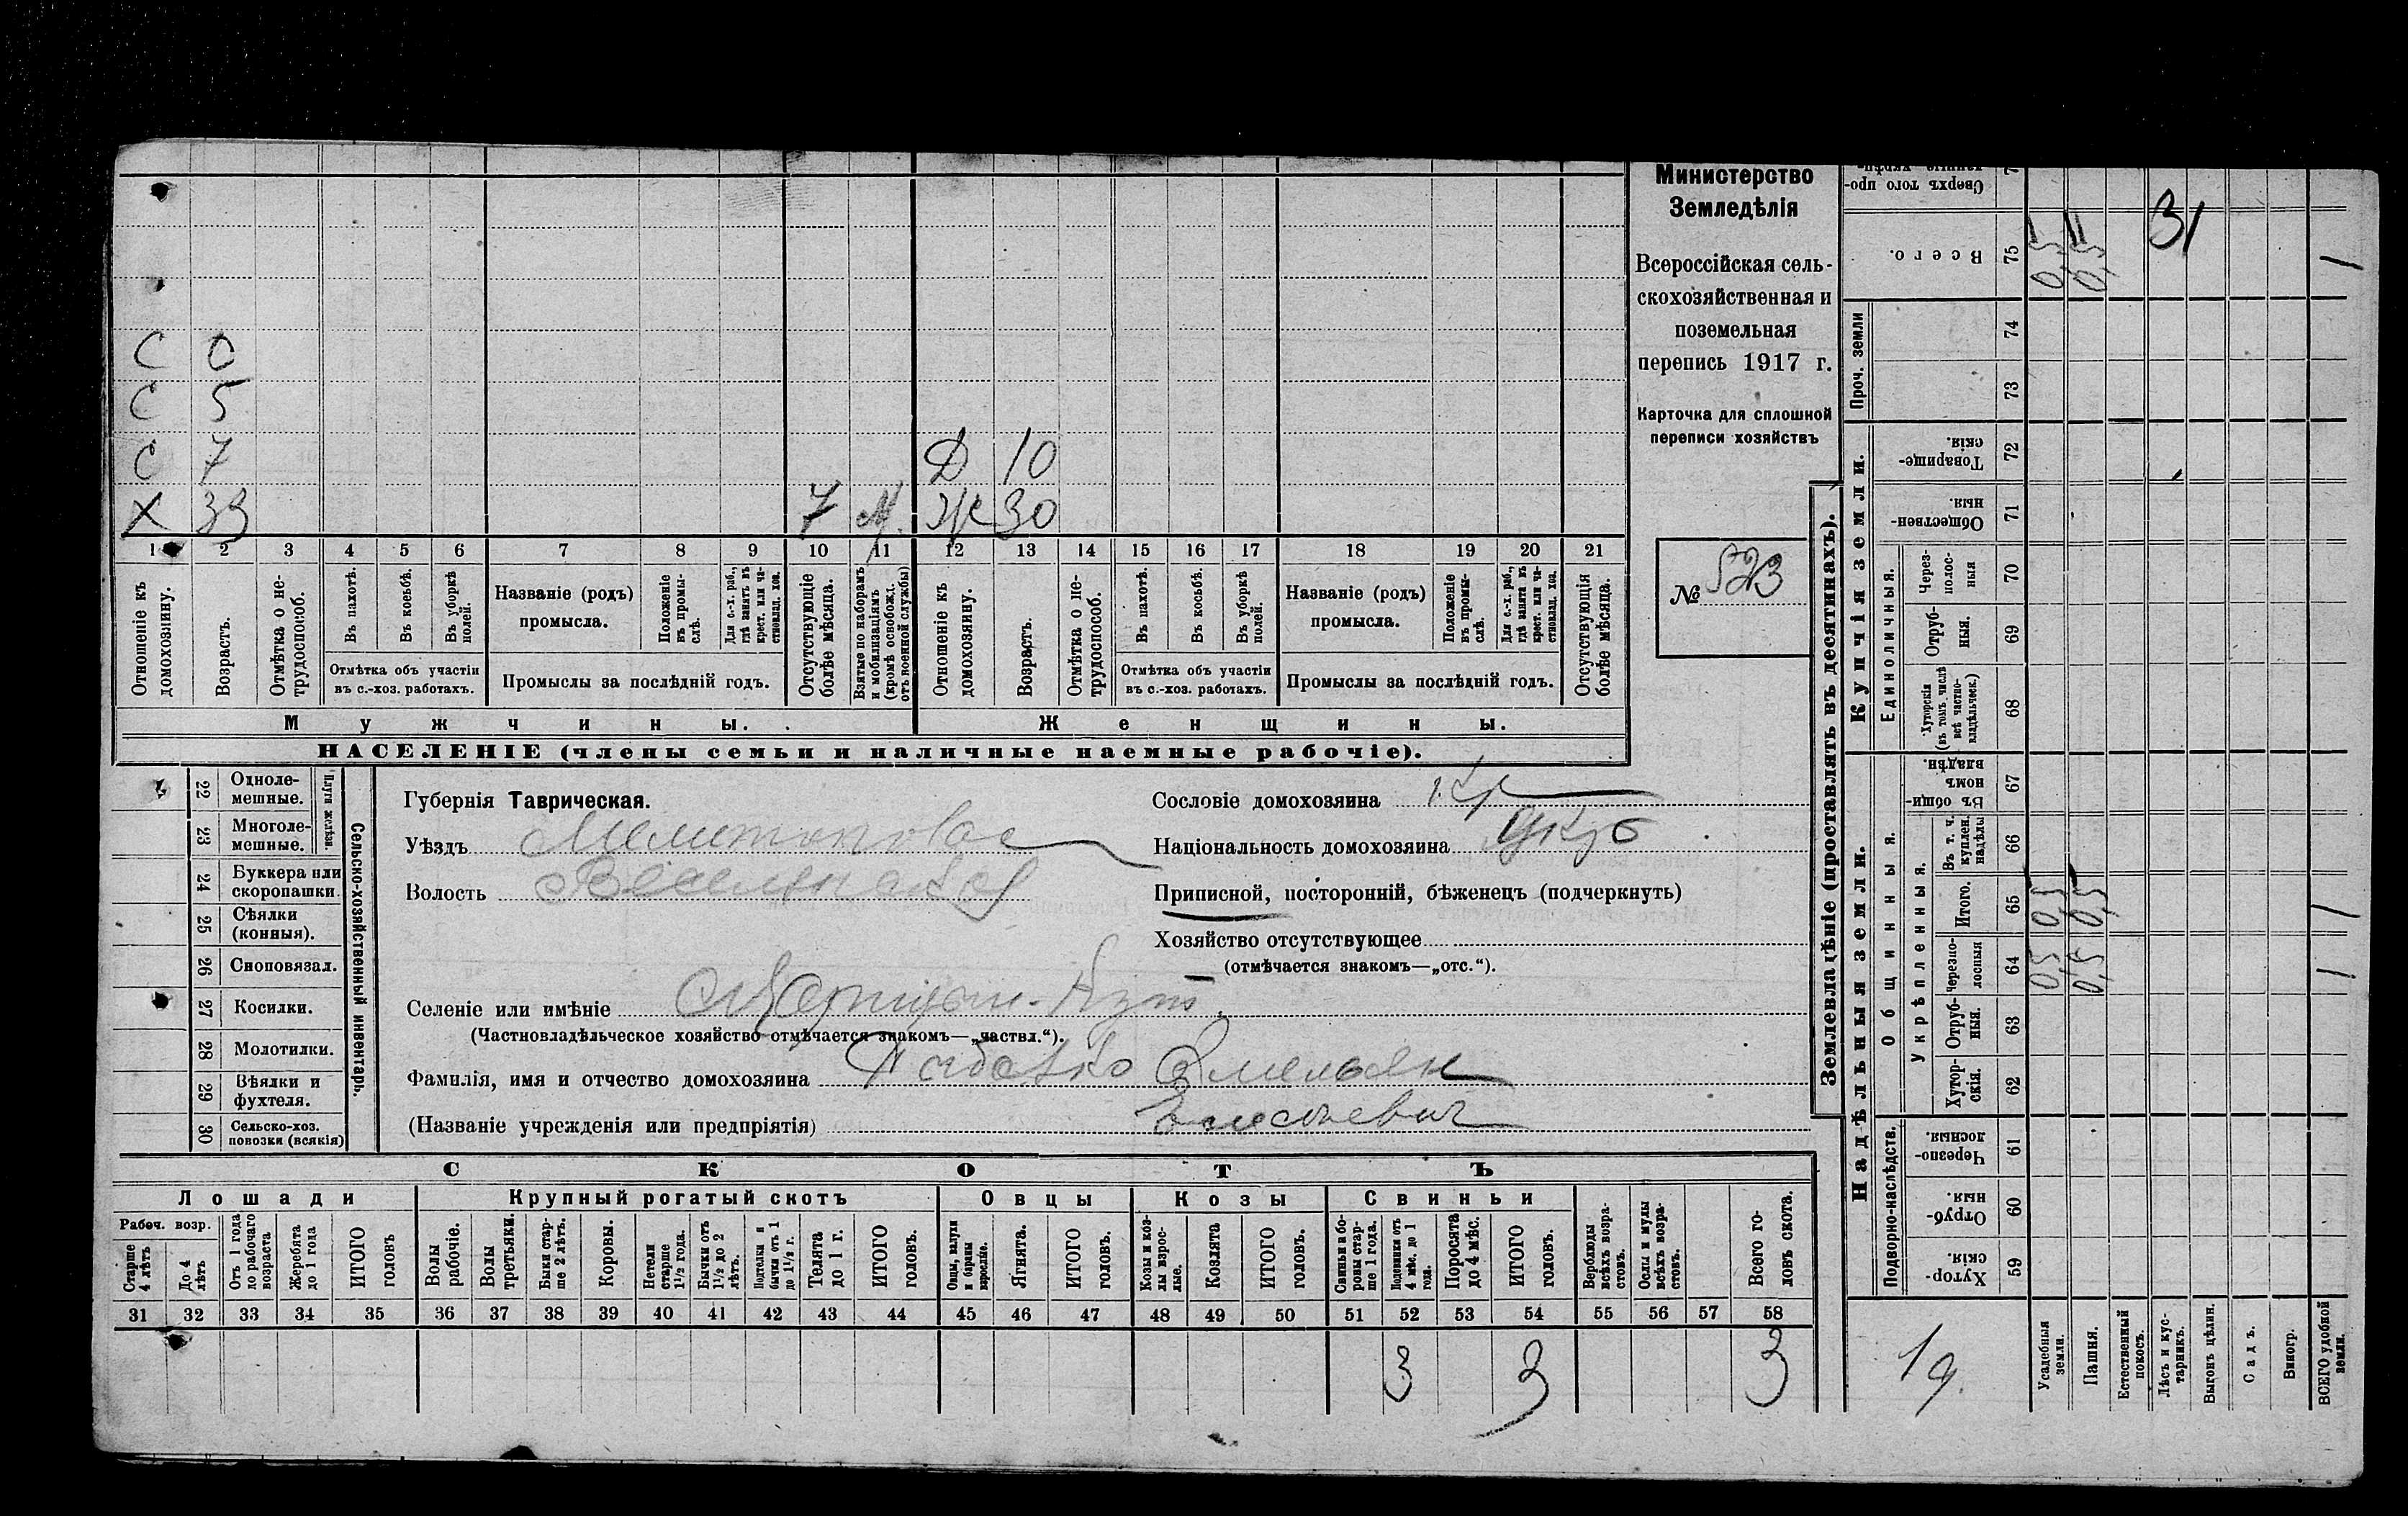 Министерство
Земледѣлія
Всероссійская сель-
скохозяйственная и
поземельная
перепись 1917 г.
Карточка для сплошной
переписи хозяйствъ
№ 523
С 0
С 5
С 7 Д 10
Х 33 7 М. Ж 30
1 2 3 4 5 6 7 8 9 10 11 12 13 14 15 16 17 18 19 20 21
Отношеніе къ домохозяину.
Возрастъ.
Отмѣтка о не-трудоспособ.
Въ пахотѣ.
Въ косьбѣ.
Въ уборкѣ полей.
Отмѣтка объ участіи
въ с.-хоз. работахъ.
Названіе (родъ)
промысла.
Положеніе въ промы-слѣ.
Для с.-х. раб., гдѣ занятъ въ крест. или ча-стновлад. хоз.
Промыслы за послѣдній годъ.
Отсутствующіе болѣе мѣсяца.
Взятые по наборамъ и мобилизаціямъ (кромѣ освобожд. отъ военной службы)
Отношеніе къ домохозяину.
Возрастъ.
Отмѣтка о не-трудоспособ.
Въ пахотѣ.
Въ косьбѣ.
Въ уборкѣ полей.
Отмѣтка объ участіи
въ с.-хоз. работахъ.
Названіе (родъ)
промысла.
Положеніе въ промы-слѣ.
Для с.-х. раб., гдѣ занята въ крест. или ча-стновлад. хоз.
Промыслы за послѣдній годъ.
Отсутствующія болѣе мѣсяца.
Мужчины. Женщины.
НАСЕЛЕНІЕ (члены семьи и наличные наемные рабочіе).
Сельско-хозяйственный инвентарь.
Плуги желѣзн.
22 Одноле-мешные.
23 Многоле-мешные.
24 Буккера или скоропашки.
25 Сѣялки (конныя).
26 Сноповязал.
27 Косилки.
28 Молотилки.
29 Вѣялки и фухтеля.
30 Сельско-хоз. повозки (всякія)
Губернія Таврическая.
Уѣздъ Мелитопольс
Волость Веселянская
Сословіе домохозяина кр
Національность домохозяина Укр
Приписной, посторонній, бѣженец (подчеркнуть)
Хозяйство отсутствующее
(отмѣчается знакомъ—„отс.“).
Селеніе или имѣніе
(Частновладѣльческое хозяйство отмѣчается знакомъ—„частвл.“).
Фамилія, имя и отчество домохозяина Емельян
(Названіе учрежденія или предпріятія)
СКОТЪ
Лошади Крупный рогатый скотъ Овцы Козы Свиньи
Рабоч. возр.
Старше 4 лѣтъ
До 4 лѣтъ
Отъ 1 года до рабочаго возраста
Жеребята до 1 года
ИТОГО головъ
Волы рабочіе.
Волы третьяки.
Быки стар-ше 2 лѣтъ.
Коровы.
Нетели старше 1½ года.
Бычки отъ 1½ до 2 лѣтъ.
Подтелки и бычки отъ 1 до 1½ г.
Телята до 1 г.
ИТОГО головъ.
Овцы, валухи и бараны взрослые.
Ягнята.
ИТОГО головъ.
Козы и коз-лы взрос-лые.
Козлята
ИТОГО головъ.
Свиньи и бо-ровы стар-ше 1 года.
Подсвинки отъ 4 мѣс. до 1 года.
Поросята до 4 мѣс.
ИТОГО головъ.
Верблюды всѣхъ возра-стовъ.
Ослы и мулы всѣхъ возра-стовъ.
Всего го-ловъ скота.
31 32 33 34 35 36 37 38 39 40 41 42 43 44 45 46 47 48 49 50 51 52 53 54 55 56 57 58
3 3 3
Землевладѣніе (проставлять въ десятинахъ).
Сверхъ того про-
Всего. 75 0,5 0,5 31 1
Проч. земли
74
73
Купчія земли.
Товарище-скія. 72
Обществен-ныя. 71
Единоличныя.
Через-полос-ныя 70
Отруб-ныя. 69
Хуторскія (въ томъ числѣ всѣ частно-владѣльческ.) 68
Надѣльныя земли.
Общинныя.
Въ общин-номъ владѣн. 67
Укрѣпленныя.
Въ т. ч. куплен. надѣлы 66
Итого. 65 0,5 0,5 1
Черезпо-лосныя 64 0,5 0,5 1
Отруб-ныя. 63
Хутор-скія. 62
Подворно-наслѣдств.
Черезпо-лосныя. 61
Отруб-ныя. 60
Хутор-скія. 59
19.
Усадебныя земли.
Пашня.
Естественный покосъ.
Лѣсъ и кус-тарникъ.
Выгонъ цѣлин.
Садъ.
Виногр.
ВСЕГО удобной земли.